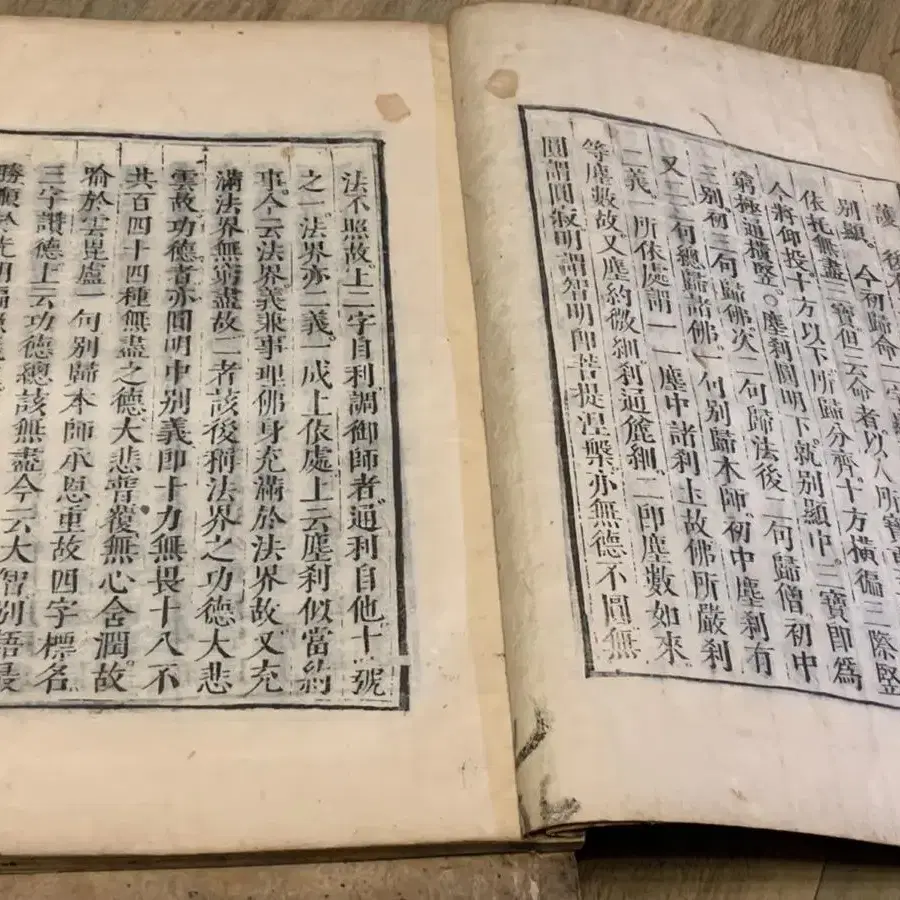 護 後
別顯。今初歸命二字
依托無盡三寶但云命者以人所寶
今將仰投十方以下所歸分齊十方橫徧三際竪
窮極通橫竪。塵剎圓明下就別顯中三寶即為
三別初三句歸佛次二句歸法後二句歸僧初中
又二二句總歸諸佛一句別歸本師初中塵剎有
二義一所依處謂一一塵中諸剎土故佛所嚴剎
等塵數故又塵約微細剎通麄細二即塵數如來
圓謂圓寂明謂智明即菩提涅槃亦無德不圓無
法不照故上二字自利調御師者通利自他十號
之一法界亦二義一成上依處上云塵剎似當約
事今云法界義兼事理佛身充滿於法界故又充
滿法界無窮盡故二者該後稱法界之功德大悲
雲故功德者亦圓明中別義即十力無畏十八不
共百四十四種無盡之德大悲普覆無心含潤故
喻於雲毘盧一句別歸本師承恩重故四字標名
三字讚德上云功德總該無盡今云大智別語最
勝